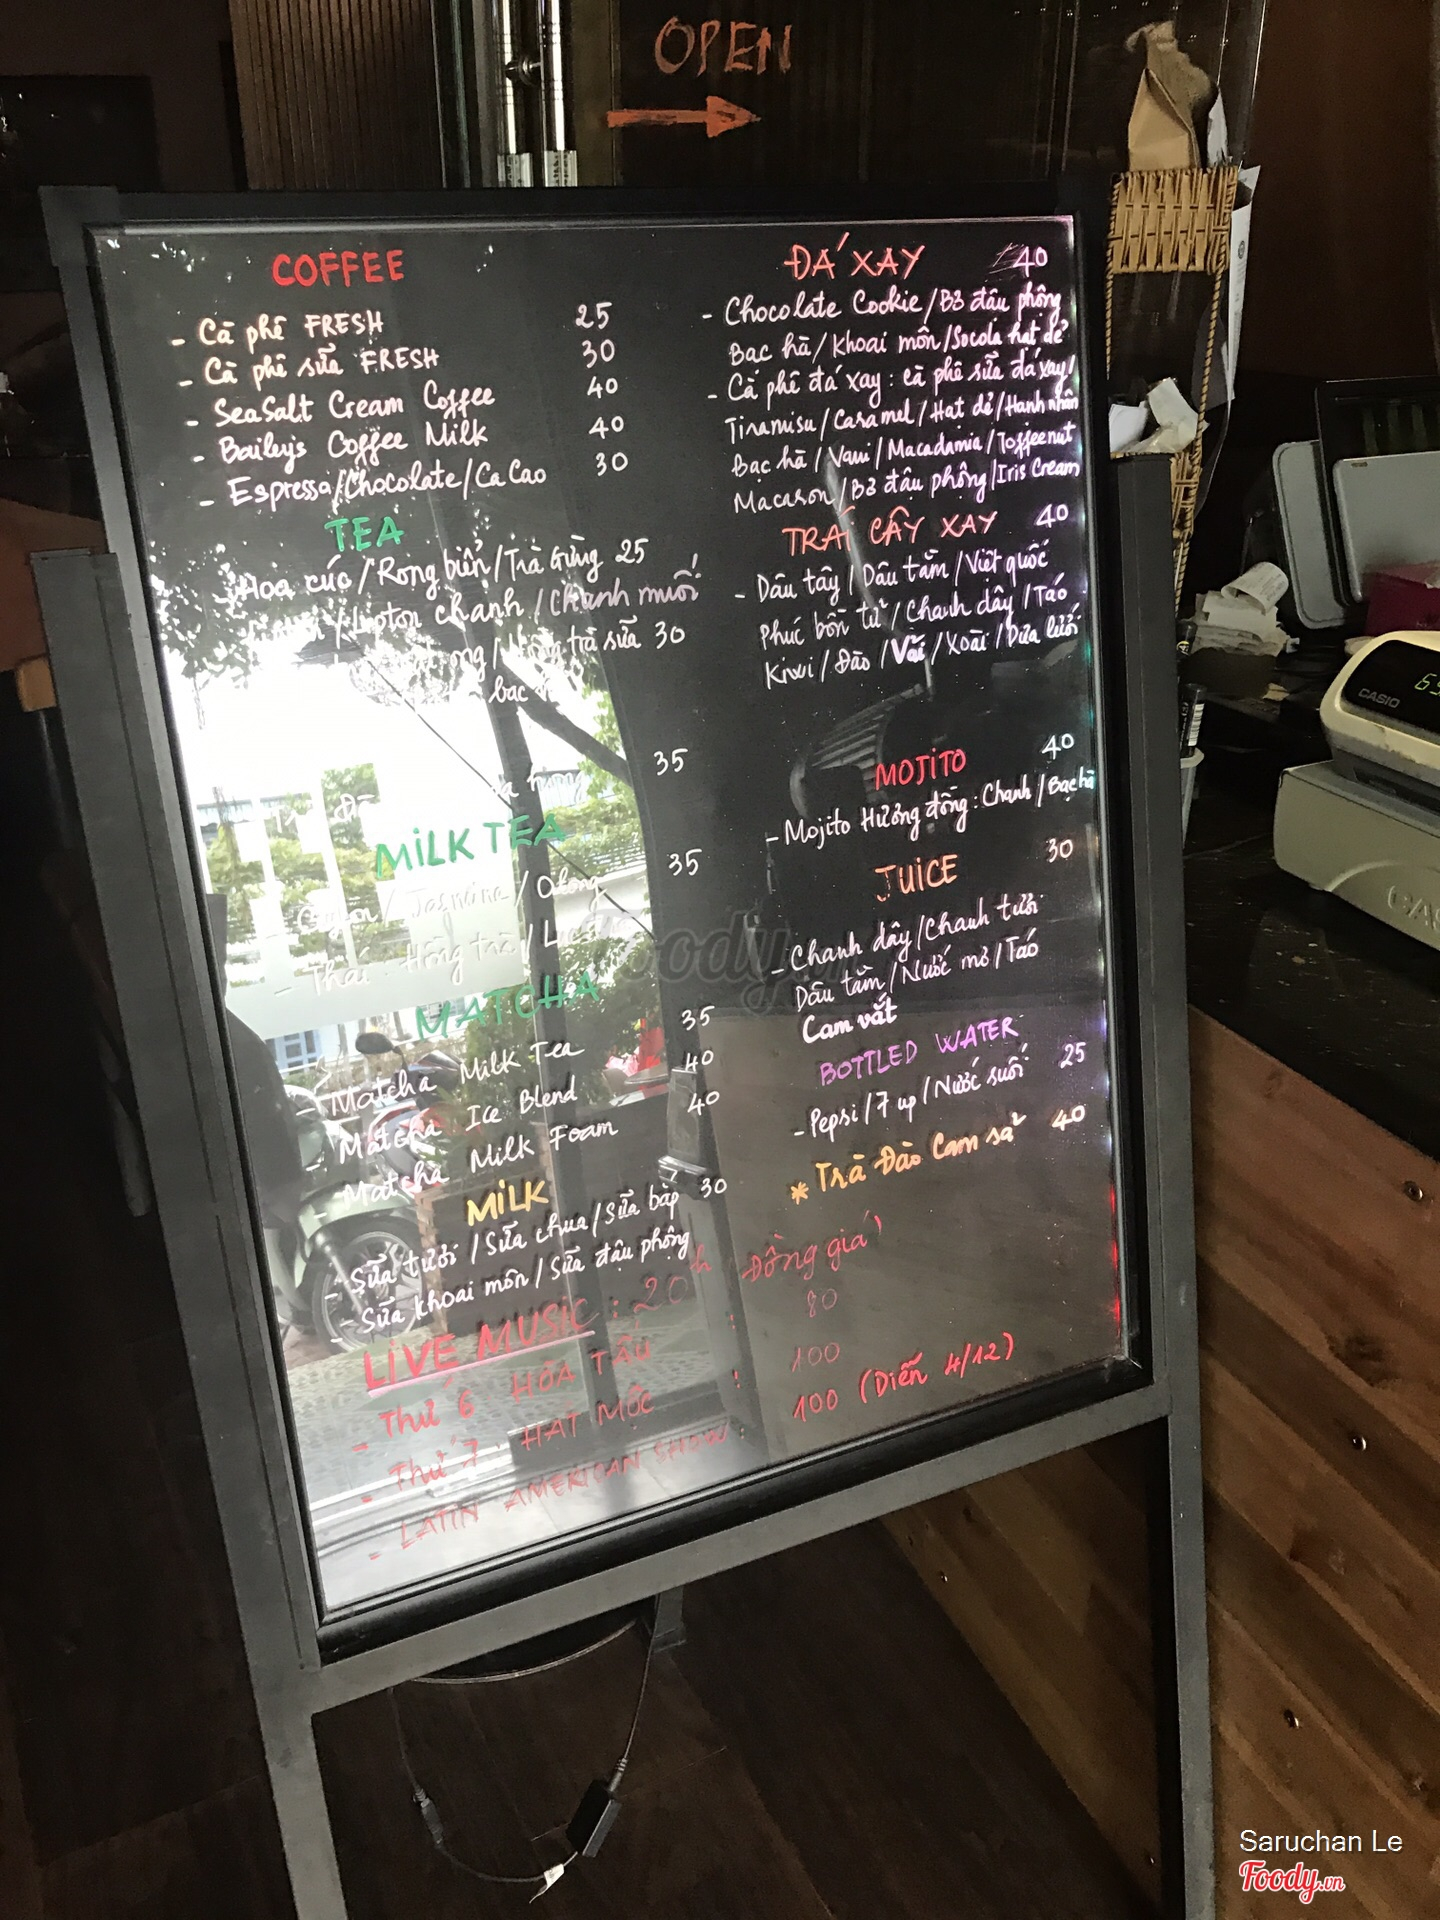 OPEN
COFFEE
- Cà phê FRESH 25
- Cà phê sữa FRESH 30
- SeaSalt Cream Coffee 40
- Baileys Coffee Milk 40
- Espresso/Chocolate/Ca Cao 30
TEA
Hoa cúc/Rong biển/Trà Gừng 25
/Lipton chanh/Chanh muối
trà sữa 30
bạc
35
MILK TEA
/Jasmine/Olong 35
- Thái Hồng trà/
MATCHA
- Matcha Milk Tea 35
- Matcha Ice Blend 40
- Matcha Milk Foam 40
MILK
- Sữa tươi/Sữa chua/Sữa bắp 30
- Sữa khoai môn/Sữa đậu phộng
LIVE MUSIC: 20h (Đồng giá)
- Thứ 6 HÒA TẤU : 80
- Thứ 7 HÁT MỘC : 100
- LATIN AMERICAN SHOW: 100 (Diễn 4/12)
ĐÁ XAY 40
- Chocolate Cookie/Bơ đậu phộng
Bạc hà/Khoai môn/Socola hạt dẻ
- Cà phê đá xay: cà phê sữa đá xay/
Tiramisu/Caramel/Hạt dẻ/Hạnh nhân
Bạc hà/Vani/Macadamia/Toffeenut
Macaron/Bơ đậu phộng/Iris Cream
TRÁI CÂY XAY 40
- Dâu tây/Dâu tằm/Việt quốc
Phúc bồn tử/Chanh dây/Táo
Kiwi/Đào/Vải/Xoài/Dưa lưới
MOJITO 40
- Mojito Hương đồng: Chanh/Bạc hà
JUICE 30
- Chanh dây/Chanh tươi
Dâu tằm/Nước mơ/Táo
Cam vắt
BOTTLED WATER
- Pepsi/7 up/Nước suối 25
* Trà Đào Cam sả 40
CASIO
Foody
Saruchan Le
Foody.vn